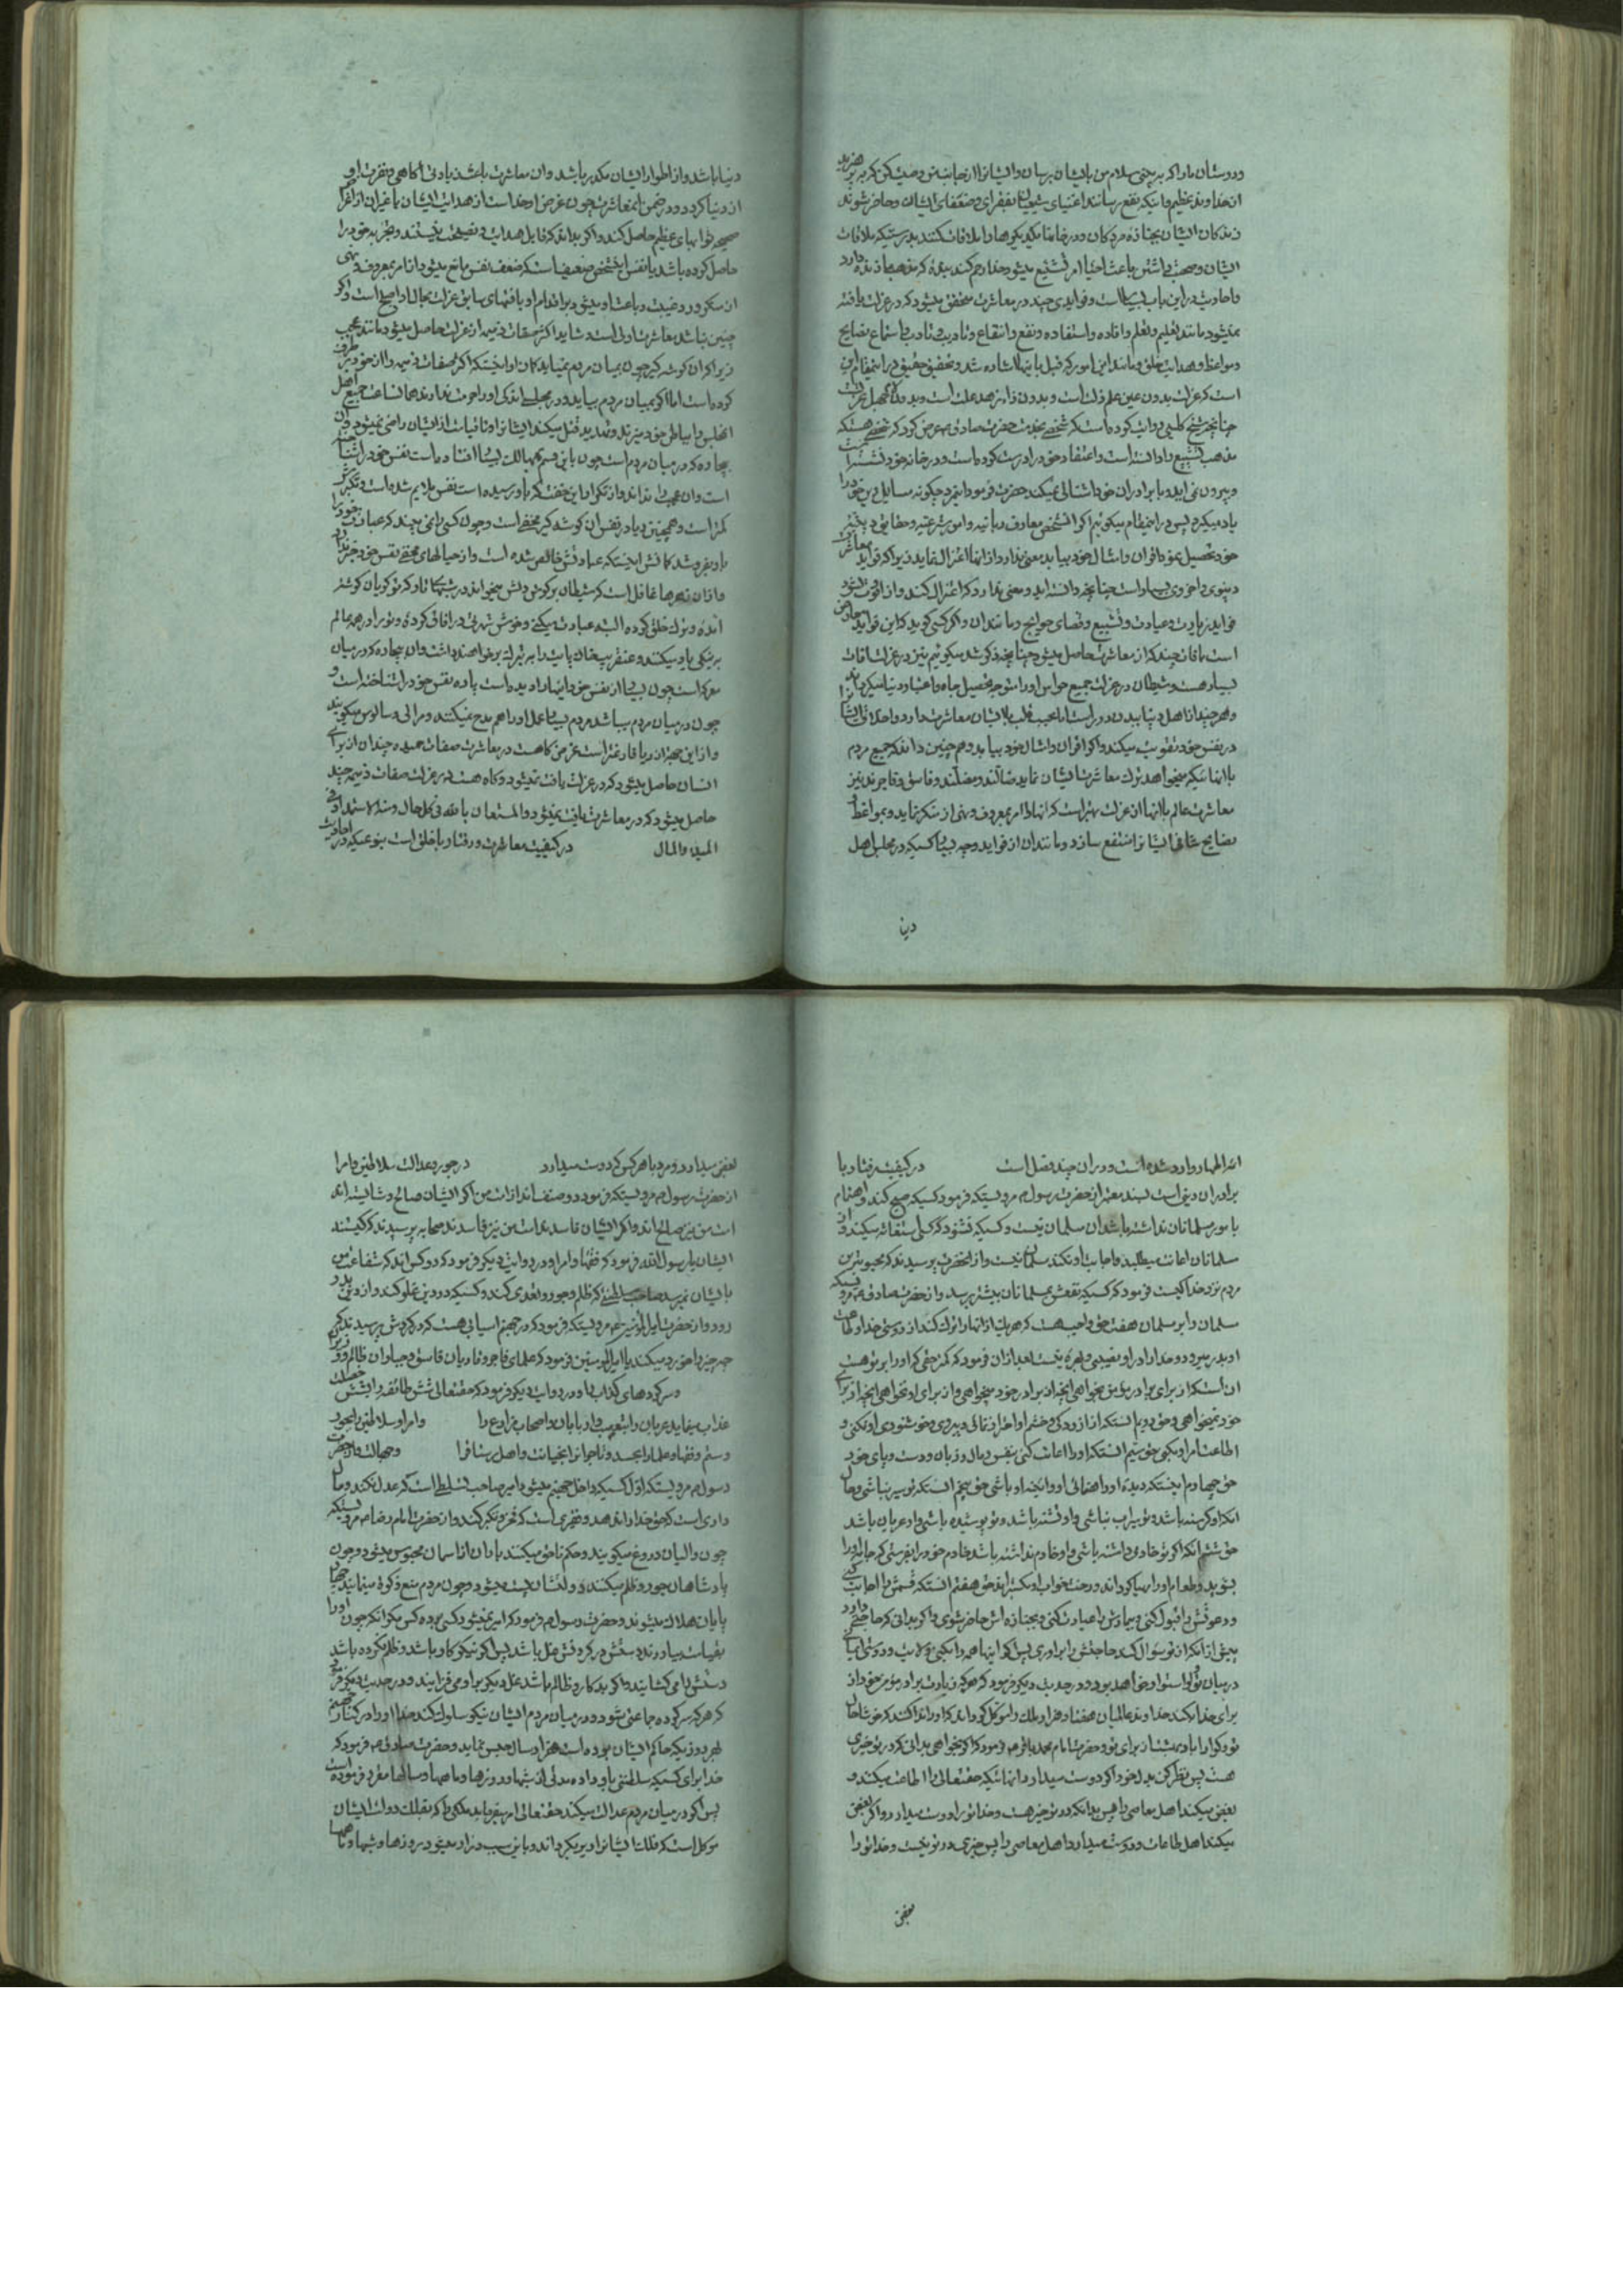 ودوستان ما را که به بینی سلام من بایشان برسان و ایشانرا از جانب من وصیت کن که بپرهیزید
از خداوند عظیم و باینکه نفع رسانند اغنیای ایشان بفقرای و ضعفای ایشان و حاضر شوند
زندکان ایشان بجنازه مردکان و در خانها یکدیکر را ملاقات کنند بدرستیکه ملاقات
ایشان و صحبت داشتن باعث احیا امر تشیع میشود خدا رحم کند بنده که مذهب ما زنده دارد
و احادیث در این باب بسیار است و فوایدی چند در معاشرت متحقق میشود که در عزلت یافته
نمیشود مانند تعلیم و تعلم و افاده و استفاده و نفع و انتفاع و تادیب و تادب و استماع نصایح
و مواعظ و هدایت خلق و مانند این امور که قبل باینها اشاره شد و تحقیق حقیق در اینمقام این
است که عزلت بدون عین علم زلت است و بدون زاء زهد علت است
چنانچه شیخ کلینی روایت کرده است که شخصی بخدمت حضرت صادق ع عرض کرد که شخصی هست که
مذهب تشیع را دانسته است و اعتقاد خود را درست کرده است و در خانه خود نشسته است
و بیرون نمی اید و با برادران خود اشنائی نمیکند حضرت فرمود اینمرد چکونه مسایل دین خود را
یاد میکیرد پس در اینمقام میکوئیم اکر انشخص معارف ربانیه و اوامر شرعیه و حقایق دینیه
خود تحصیل نموده اقران و امثال خود بیابد معنی ندارد از انها اعتزال نماید زیرا که فواید معاشرت
دنیوی و اخروی بسیار است چنانچه دانسته اید و معنی ندارد که اعتزال کند و از او فوت شود
فواید زیارت و عیادت و تشییع و قضای حوایج و مانند ان و اکر کسی کوید که این فواید
است بافات چند که از معاشرت حاصل میشود چنانچه مذکور شد میکوئیم نیز در عزلت افات
بسیار هست و شیطان در عزلت جمیع حواس او را متوجه تحصیل جاه و اعتبار دنیا میکرداند
و هر چند از اهل دنیا بیدن دور است اما بحسب قلب با ایشان معاشرت دارد و اخلاق ایشانرا
در نفس خود تقویت میکند و اکر اقران و امثال خود بیابد و هم چنین داند که جمیع مردم
با انهائیکه میخواهد ترک معاشرت ایشان نماید ضالند و مضلند و فاسق و فاجرند نیز
معاشرت عالم با انها از عزلت بهتر است که انها را امر بمعروف و نهی از منکر نماید و بمواعظ و
نصایح شافی ایشانرا منتفع سازد و مانند ان از فواید وجه بسا کسیکه در مجلس اهل
دنیا
دنیا باشد و از اطوار ایشان مکدر باشد و ان معاشرت باعث زیادتی اکاهی و نفرت او
از دنیا کردد و در ضمن انمعاشرت چون غرض او خدا است از هدایت ایشان یا غیر ان از اغراض
صحیحه ثوابهای عظیم حاصل کند و اکر بداند که قابل هدایت و نصیحت نیستند و تجربه خود را
حاصل کرده باشد یا نفس انشخص ضعیف است که ضعف نفس مانع میشود از امر بمعروف و نهی
از منکر و رد غیبت و باعث او میشود بر اقدام او بافتهای سابق عزلت بحال او اصلح است و اکر
چنین نباشد معاشرت اولی است و شاید اکثر صفات ذمیمه از عزلت حاصل میشود مانند عجب
زیرا که ان کوشه کیر چون بمیان مردم نمیاید کمان او اینستکه اکثر صفات ذمیمه را از خود برطرف
کرده است اما اکر بمیان مردم بیاید و در مجلسی اندکی او را حرمت ندارند همان ساعت جمیع اهل
انمجلس را بباطن خود میزند و تهدید قتل میکند ایشانرا و تا قیامت از ایشان راضی نمیشود و ان
بیچاره که در میان مردم است چون باین قسم مهالک بسیار افتاده است نفس خود را شناخته
است و ان عجب را ندارد و از تکرار این خفتها که باو رسیده است نفس ملایم شده است و تکبرش
کمتر است و همچنین ریا در نفس ان کوشه کیر مخفی است و چون کسی را نمی بیند که عبادت خود را
باو بفروشد کمانش اینستکه عبادتش خالص شده است و از حیلهای مخفی نفس خود خبر ندارد
و از ان زهرها غافل است که شیطان بر کوش دلش میخواند در شبهای تار که تو کریان کوشه
امده و ترک خلق کرده البته عبادت میکنی و خوش شهرتی در افاق کرده و تو را در همه عالم
به نیکی یاد میکنند و عنقریب خاک پایت را به تبرک بر خواهند داشت و ان بیچاره که در میان
معرکه است چون بسیار از نفس خود اینها را دیده است پاره نفس خود را شناخته است و
چون در میان مردم میباشد مردم بسیار عمل او را هم مدح نمیکنند و مرائی و سالوس میکویند
و از این جهت از ریا فارغتر است غرض کاه هست در معاشرت صفات حمیده چندان از برای
انسان حاصل میشود که در عزلت یافت نمیشود و کاه هست در عزلت صفات ذمیمه چند
حاصل میشود که در معاشرت یافت نمیشود والمستعان بالله فی کل حال ومنه الاستمداد فی
المبدء والمال در کیفیت معاشرت و رفتار با خلق است بنوعیکه در احادیث
ائمه اطهار وارد شده است و در ان چند فصل است در کیفیت رفتار با
برادران دینی است بسند معتبر از حضرت رسول ص مرویستکه فرمود کسیکه صبح کند و اهتمام
بامور مسلمانان نداشته باشد ان مسلمان نیست و کسیکه بشنود که کسی استغاثه میکند و از
مسلمانان اعانت میطلبد و اجابت او نکند مسلمان نیست و از انحضرت پرسیدند که محبوبترین
مردم نزد خدا کیست فرمود که کسیکه نفعش بمسلمانان بیشتر برسد و از حضرت صادق ع مرویستکه
مسلمان را بر مسلمان هفت حق واجب هست که هر یک از انها را ترک کند از دوستی خدا و طاعت
او بدر میرود و خدا را در او نصیبی و بهره نیست بعد از ان فرمود که کمتر حقی که او را بر تو هست
ان استکه از برای برادر مؤمن بخواهی انچه از برای خود میخواهی و از برای او نخواهی انچه از برای
خود نمیخواهی و حق دویم انستکه از ازردکی و خشم او احتراز نمائی و پیروی خوشنودی او بکنی و
اطاعت امر او بکنی حق سیم انستکه او را اعانت کنی بنفس و مال و زبان و دست و پای خود
حق چهارم اینستکه دیده او و راهنمائی او و ائینه او باشی حق پنجم انستکه تو سیر نباشی و حال
انکه او کرسنه باشد و تو سیراب نباشی و او تشنه باشد و تو پوشیده باشی و او عریان باشد
حق ششم انکه اکر تو خادمی داشته باشی و او خادم نداشته باشد خادم خود را بفرستی که جامه او را
بشوید و طعام او را مهیا کرداند و رخت خواب او بکستراند حق هفتم انستکه قسمش را اجابت کنی
و دعوتش را قبول کنی و بیمارش را عیادت کنی و بجنازه اش حاضر شوی و اکر بدانی که حاجتی دارد
پیش از انکه از تو سؤال کند حاجتش را براوری پس اکر اینها همه را بکنی ولایت و دوستی ایمانی
در میان تو و او استوار خواهد بود و در حدیث دیکر فرمود که هر که زیارت برادر مؤمن خود از
برای خدا بکند خداوند عالمیان هفتاد هزار ملک را موکل کرداند که او را ندا کنند که خوشا حال
تو و کوارا باد بهشت از برای تو و حضرت امام محمد باقر ع فرمود که اکر خواهی بدانی که در تو خیری
هست پس نظر کن بدل خود اکر دوست میدارد انهائیکه حقتعالی را اطاعت میکنند و
بغض میکند اهل معاصی را پس بدانکه در تو خیر هست و خدا تو را دوست میدارد و اکر بغض
میکند اهل طاعات و دوست میدارد اهل معاصی را پس خیری در تو نیست و خدا تو را
بغض
بغض میدارد و مرد با هر کس که دوست میدارد در جور و عدالت سلاطین و امرا
از حضرت رسول ص مرویستکه فرمود دو صنف اند از امت من اکر ایشان صالح و شایسته اند
امت من نیز صالح اند و اکر ایشان فاسدند امت من نیز فاسدند صحابه پرسیدند که کیستند
ایشان یا رسول الله فرمود که فقها و امرا و در روایت دیکر فرمود که دو کس اند که شفاعت من
بایشان نمیرسد صاحب سلطنتی که ظلم و جور و تعدی کند و کسیکه در دین غلو کند و از دین بدر
رود و از حضرت امیرالمؤمنین ع مرویستکه فرمود که در جهنم اسیائی هست که در کردش پرسیدند که
چه چیز را خورد میکند یا امیرالمومنین فرمود که علمای فاجر و قاریان فاسق و جباران ظالم و وزرای
و سرکردهای کذاب را و در روایت دیکر فرمود که حقتعالی شش طائفه را بشش خصلت
عذاب مینماید عربان را بتعصب و اربابان و اصحاب مزارع را و امرا و سلاطین را بجور
و ستم و فقها و علما را بحسد و تاجرانرا بخیانت و اهل رستاقرا و جهالت و از حضرت
رسول ص مرویستکه اول کسیکه داخل جهنم میشود امیر صاحب تسلطی است که عدل نکند و مال
داری است که حق خدا را ندهد و فقیری است که فخر و تکبر کند و از حضرت امام رضا ع مرویستکه
چون والیان دروغ میکویند و حکم ناحق میکنند باران از اسمان محبوس میشود و چون
پادشاهان جور و ظلم میکنند دولتشان پست میشود و چون مردم منع زکوة مینمایند چهار
پایان هلاک میشوند و حضرت رسول ص فرمود که امیر نمیشود کسی بر ده کس مکر انکه چون او را
بقیامت بیاورند دستش در کردنش غل باشد پس اکر نیکوکار باشد و ظلم نکرده باشد
دستش را می کشایند و اکر بدکار و ظالم باشد غل دیکر بر او می افزایند و در حدیث دیکر فرمود
که هر که سرکرده جماعتی شود و در میان مردم ایشان نیکو سلوک نکند خدا او را در کنار جهنم
بهر روزیکه حاکم ایشان بوده است هزار سال حبس نماید و حضرت صادق ع فرمود که
خدا برای کسیکه سلطنتی باو داده مدتی از شبها و روزها و ماهها و سالها مقرر فرموده است
پس اکر در میان مردم عدالت میکند حقتعالی امر میفرماید ملکی را که بفلک دولت ایشان
موکل است که فلک ایشانرا دیر بکرداند و باین سبب دراز میشود روزها و شبها و ماهها